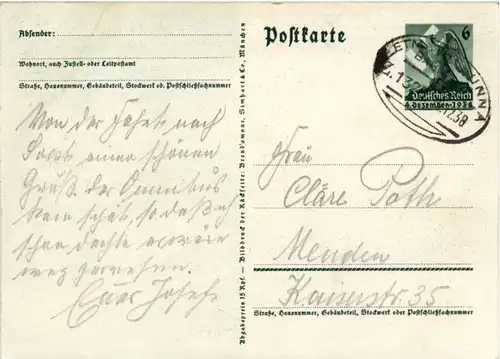 Absender:
Wohnort, auch Zustell- oder Leitpostamt
Straße, Hausnummer, Gebäudeteil, Stockwerk od. Postschließfachnummer
Von der Fahrt nach
einen schönen
Gruß der Omnibus
kam spät, so daß ich
schon dachte er wäre
weg gewesen.
Euer Josef
Abgabepreis 15 Rpf. - Bilddruck der Rückseite: Brend'amour, Simhart & Co., München
Postkarte
6
Deutsches Reich
4. Dezember 1938
UNNA
Z.13
12.38
Frau
Cläre Poth
Menden
Kaiserstr. 35
Straße, Hausnummer, Gebäudeteil, Stockwerk oder Postschließfachnummer